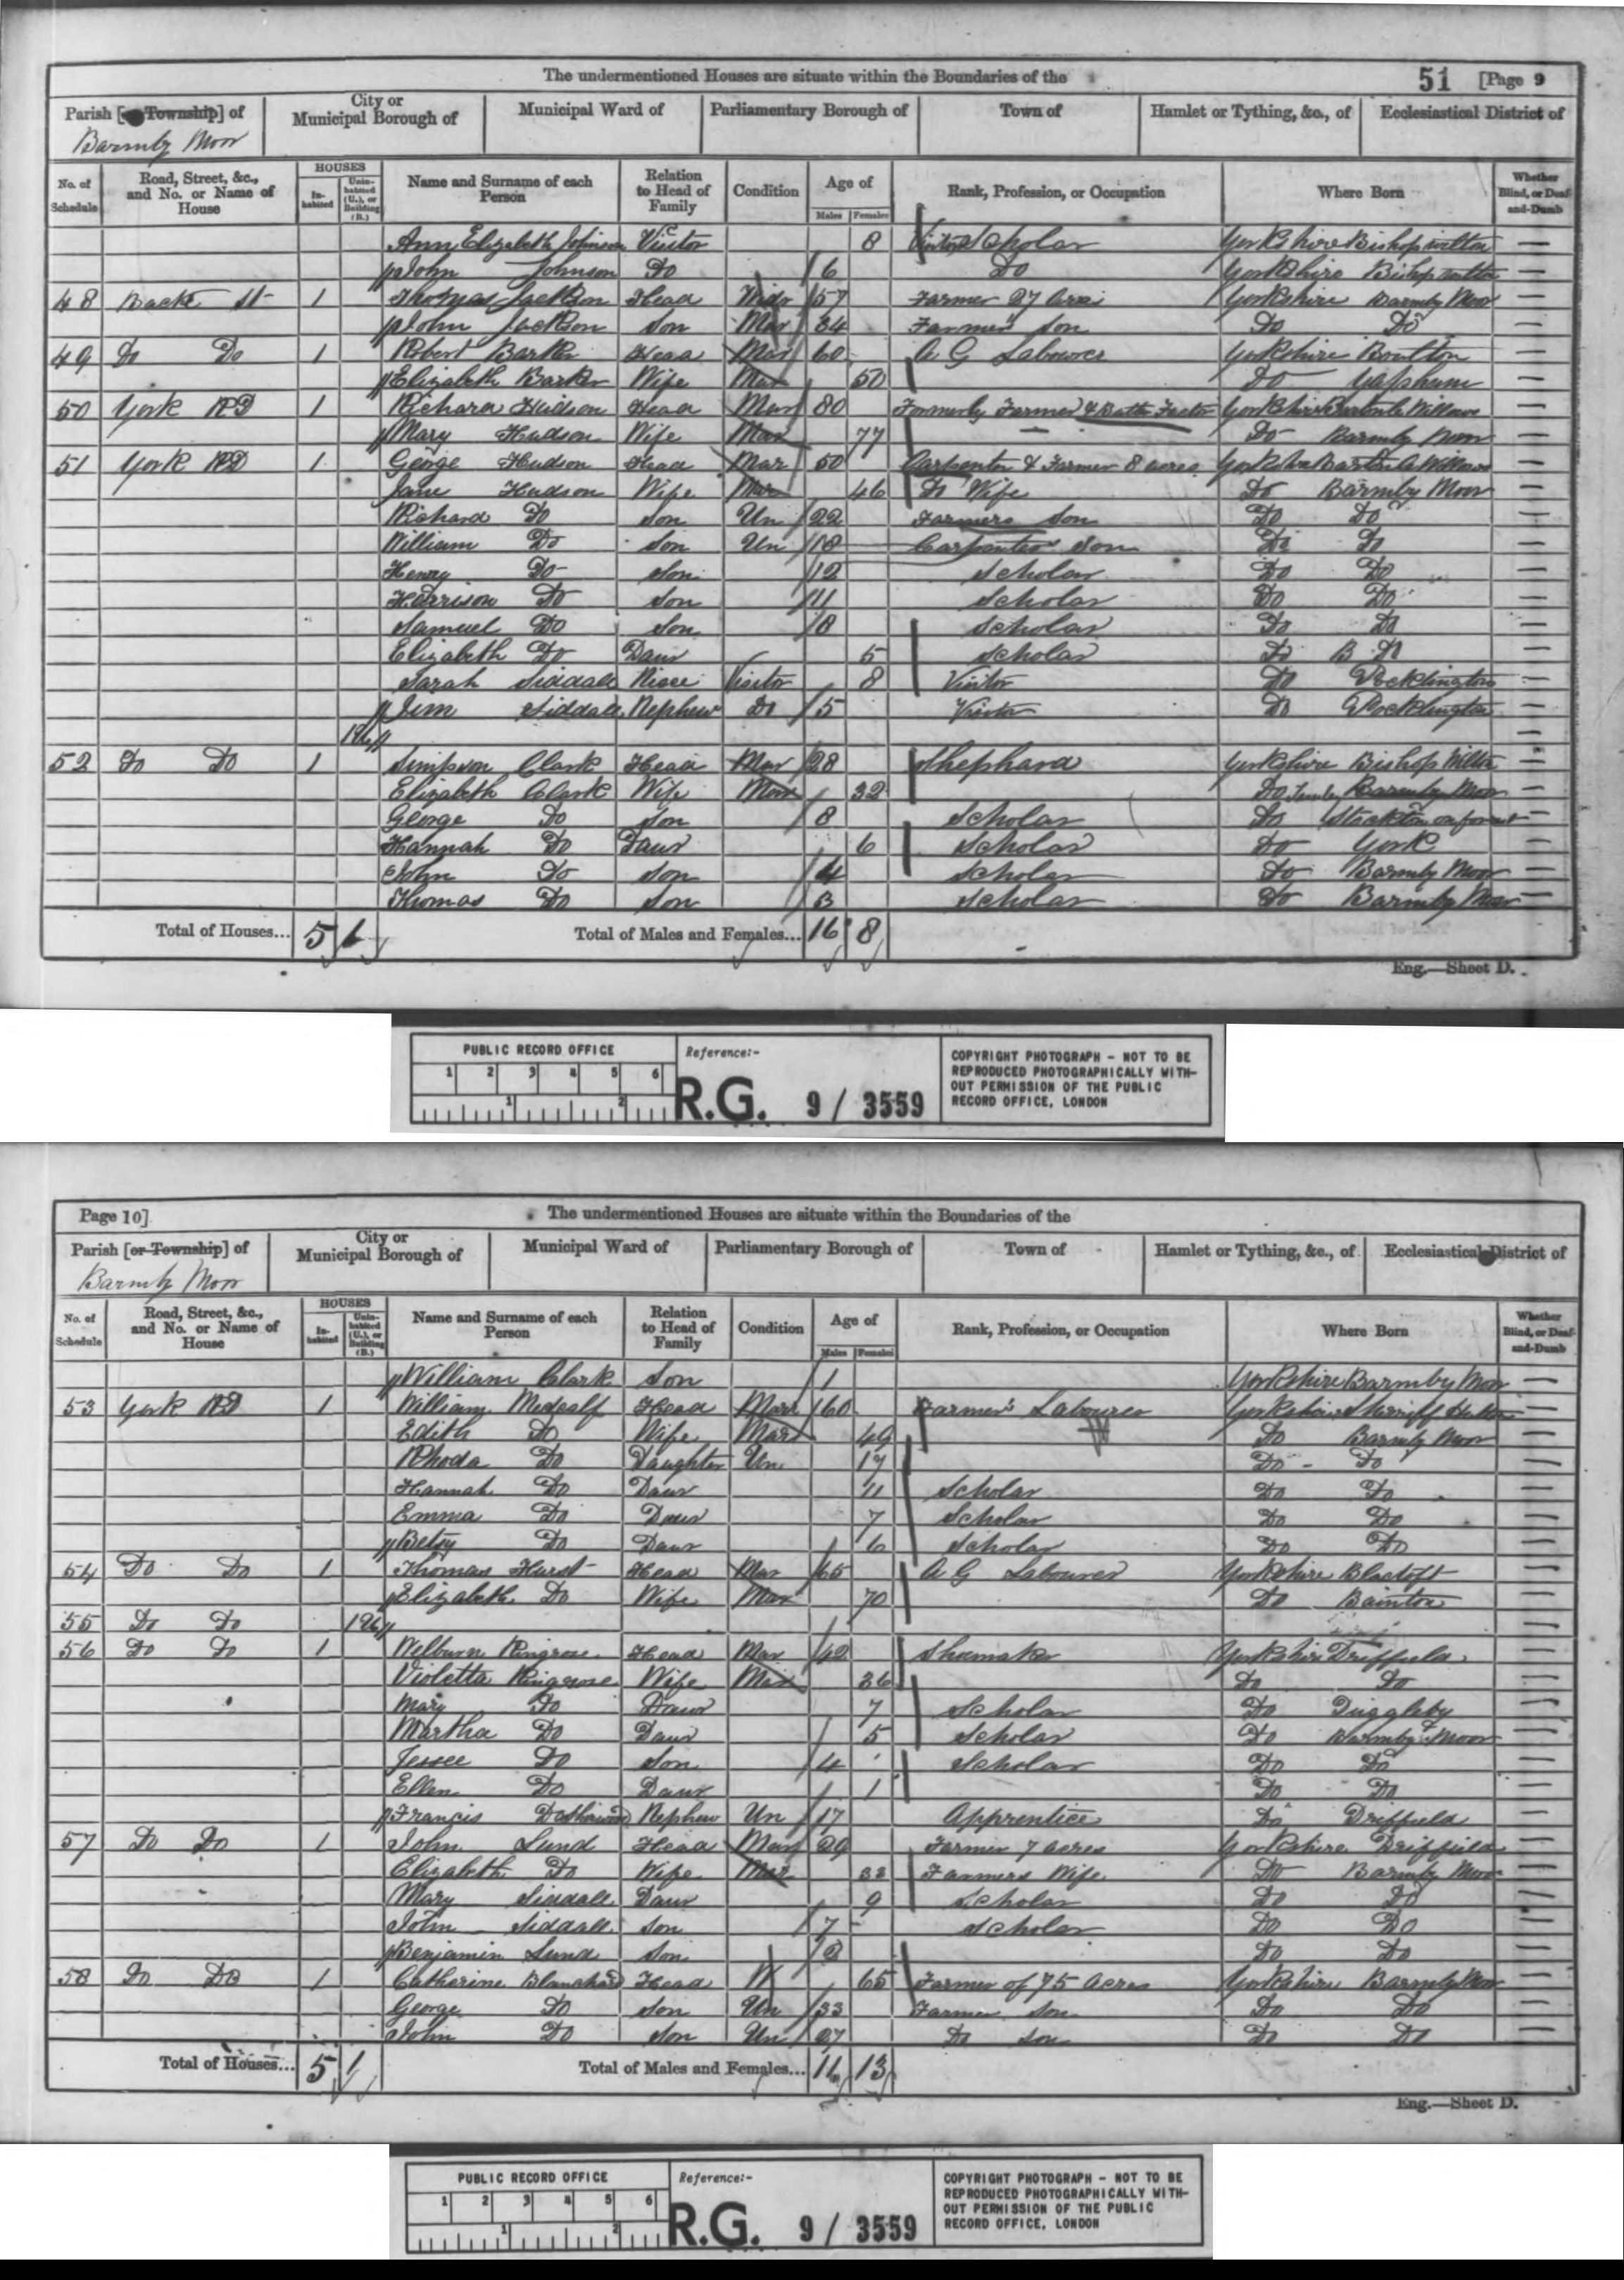 The undermentioned Houses are situate within the Boundaries of the 51 [Page 9
Parish [or Township] of City or Municipal Borough of Municipal Ward of Parliamentary Borough of Town of Hamlet or Tything, &c., of Ecclesiastical District of
Barmby Moor
No. of Schedule Road, Street, &c., and No. or Name of House HOUSES Inhabited Uninhabited (U.), or Building (B.) Name and Surname of each Person Relation to Head of Family Condition Age of Males Females Rank, Profession, or Occupation Where Born Whether Blind, or Deaf-and-Dumb
Ann Elizabeth Johnson Visitor 8 Scholar Yorkshire Bishop wilton —
John Johnson Do 6 Do Yorkshire Bishop wilton —
48 Back St 1 Thomas Jackson Head Widr 57 Farmer 27 Acres Yorkshire Barmby Moor —
John Jackson Son Mar 34 Farmers Son Do Do —
49 Do Do 1 Robert Barker Head Mar 60 A G Labourer Yorkshire —
Elizabeth Barker Wife Mar 50 Do Yapham —
50 York RD 1 Richard Hudson Head Mar 80 Formerly Farmer & Factor Yorkshire —
Mary Hudson Wife Mar 77 Do Barmby Moor —
51 York RD 1 George Hudson Head Mar 50 Carpenter & Farmer 8 acres Yorkshire —
Jane Hudson Wife Mar 46 Do Wife Do Barmby Moor —
Richard Do Son Un 22 Farmers Son Do Do —
William Do Son Un 18 Carpenter Son Do Do —
Henry Do Son 12 Scholar Do Do —
Harrison Do Son 11 Scholar Do Do —
Samuel Do Son 8 Scholar Do Do —
Elizabeth Do Daur 5 Scholar Do B M —
Sarah Siddall Niece Visitor 8 Visitor Do Pocklington —
Jim Siddall Nephew Do 5 Visitor Do Pocklington —
1U —
52 Do Do 1 Simpson Clark Head Mar 28 Shephard Yorkshire Bishop Wilton —
Elizabeth Clark Wife Mar 32 Do Barmby Moor —
George Do Son 8 Scholar Do Stockton on forest —
Hannah Do Daur 6 Scholar Do York —
John Do Son 4 Scholar Do Barmby Moor —
Thomas Do Son 3 Scholar Do Barmby Moor —
Total of Houses... 5 1 Total of Males and Females... 16 8
Eng.—Sheet D.
PUBLIC RECORD OFFICE Reference:- COPYRIGHT PHOTOGRAPH - NOT TO BE
1 2 3 4 5 6 REPRODUCED PHOTOGRAPHICALLY WITH-
1 2 R.G. 9 / 3559 OUT PERMISSION OF THE PUBLIC
RECORD OFFICE, LONDON
Page 10] The undermentioned Houses are situate within the Boundaries of the
Parish [or Township] of City or Municipal Borough of Municipal Ward of Parliamentary Borough of Town of Hamlet or Tything, &c., of Ecclesiastical District of
Barmby Moor
No. of Schedule Road, Street, &c., and No. or Name of House HOUSES Inhabited Uninhabited (U.), or Building (B.) Name and Surname of each Person Relation to Head of Family Condition Age of Males Females Rank, Profession, or Occupation Where Born Whether Blind, or Deaf-and-Dumb
William Clark Son 1 Yorkshire Barmby Moor —
53 York RD 1 William Metcalf Head Mar 60 Farmer's Labourer Yorkshire Sherriff Hutton —
Edith Do Wife Mar 49 Do Barmby Moor —
Rhoda Do Daughter Un 17 Do Do —
Hannah Do Daur 11 Scholar Do Do —
Emma Do Daur 7 Scholar Do Do —
Betsy Do Daur 6 Scholar Do Do —
54 Do Do 1 Thomas Hurst Head Mar 65 A G Labourer Yorkshire Blactoft —
Elizabeth Do Wife Mar 70 Do Bainton —
55 Do Do 1U —
56 Do Do 1 Welburn Ringrose Head Mar 42 Shomaker Yorkshire Driffield —
Violetta Ringrose Wife Mar 36 Do Do —
Mary Do Daur 7 Scholar Do Duggleby —
Martha Do Daur 5 Scholar Do Barmby Moor —
Jessee Do Son 4 Scholar Do Do —
Ellen Do Daur 1 Do Do —
Francis Nephew Un 17 Apprentice Do Driffield —
57 Do Do 1 John Lund Head Mar 29 Farmer 7 acres Yorkshire Driffield —
Elizabeth Do Wife Mar 33 Farmers Wife Do Barmby Moor —
Mary Siddall Daur 9 Scholar Do Do —
John Siddall Son 7 Scholar Do Do —
Benjamin Lund Son 2 Do Do —
58 Do Do 1 Catherine Blanchard Head W 65 Farmer of 75 Acres Yorkshire Barmby Moor —
George Do Son Un 33 Farmer Son Do Do —
John Do Son Un 27 Do Son Do Do —
Total of Houses... 5 1 Total of Males and Females... 11 13
Eng.—Sheet D.
PUBLIC RECORD OFFICE Reference:- COPYRIGHT PHOTOGRAPH - NOT TO BE
1 2 3 4 5 6 REPRODUCED PHOTOGRAPHICALLY WITH-
1 2 R.G. 9 / 3559 OUT PERMISSION OF THE PUBLIC
RECORD OFFICE, LONDON